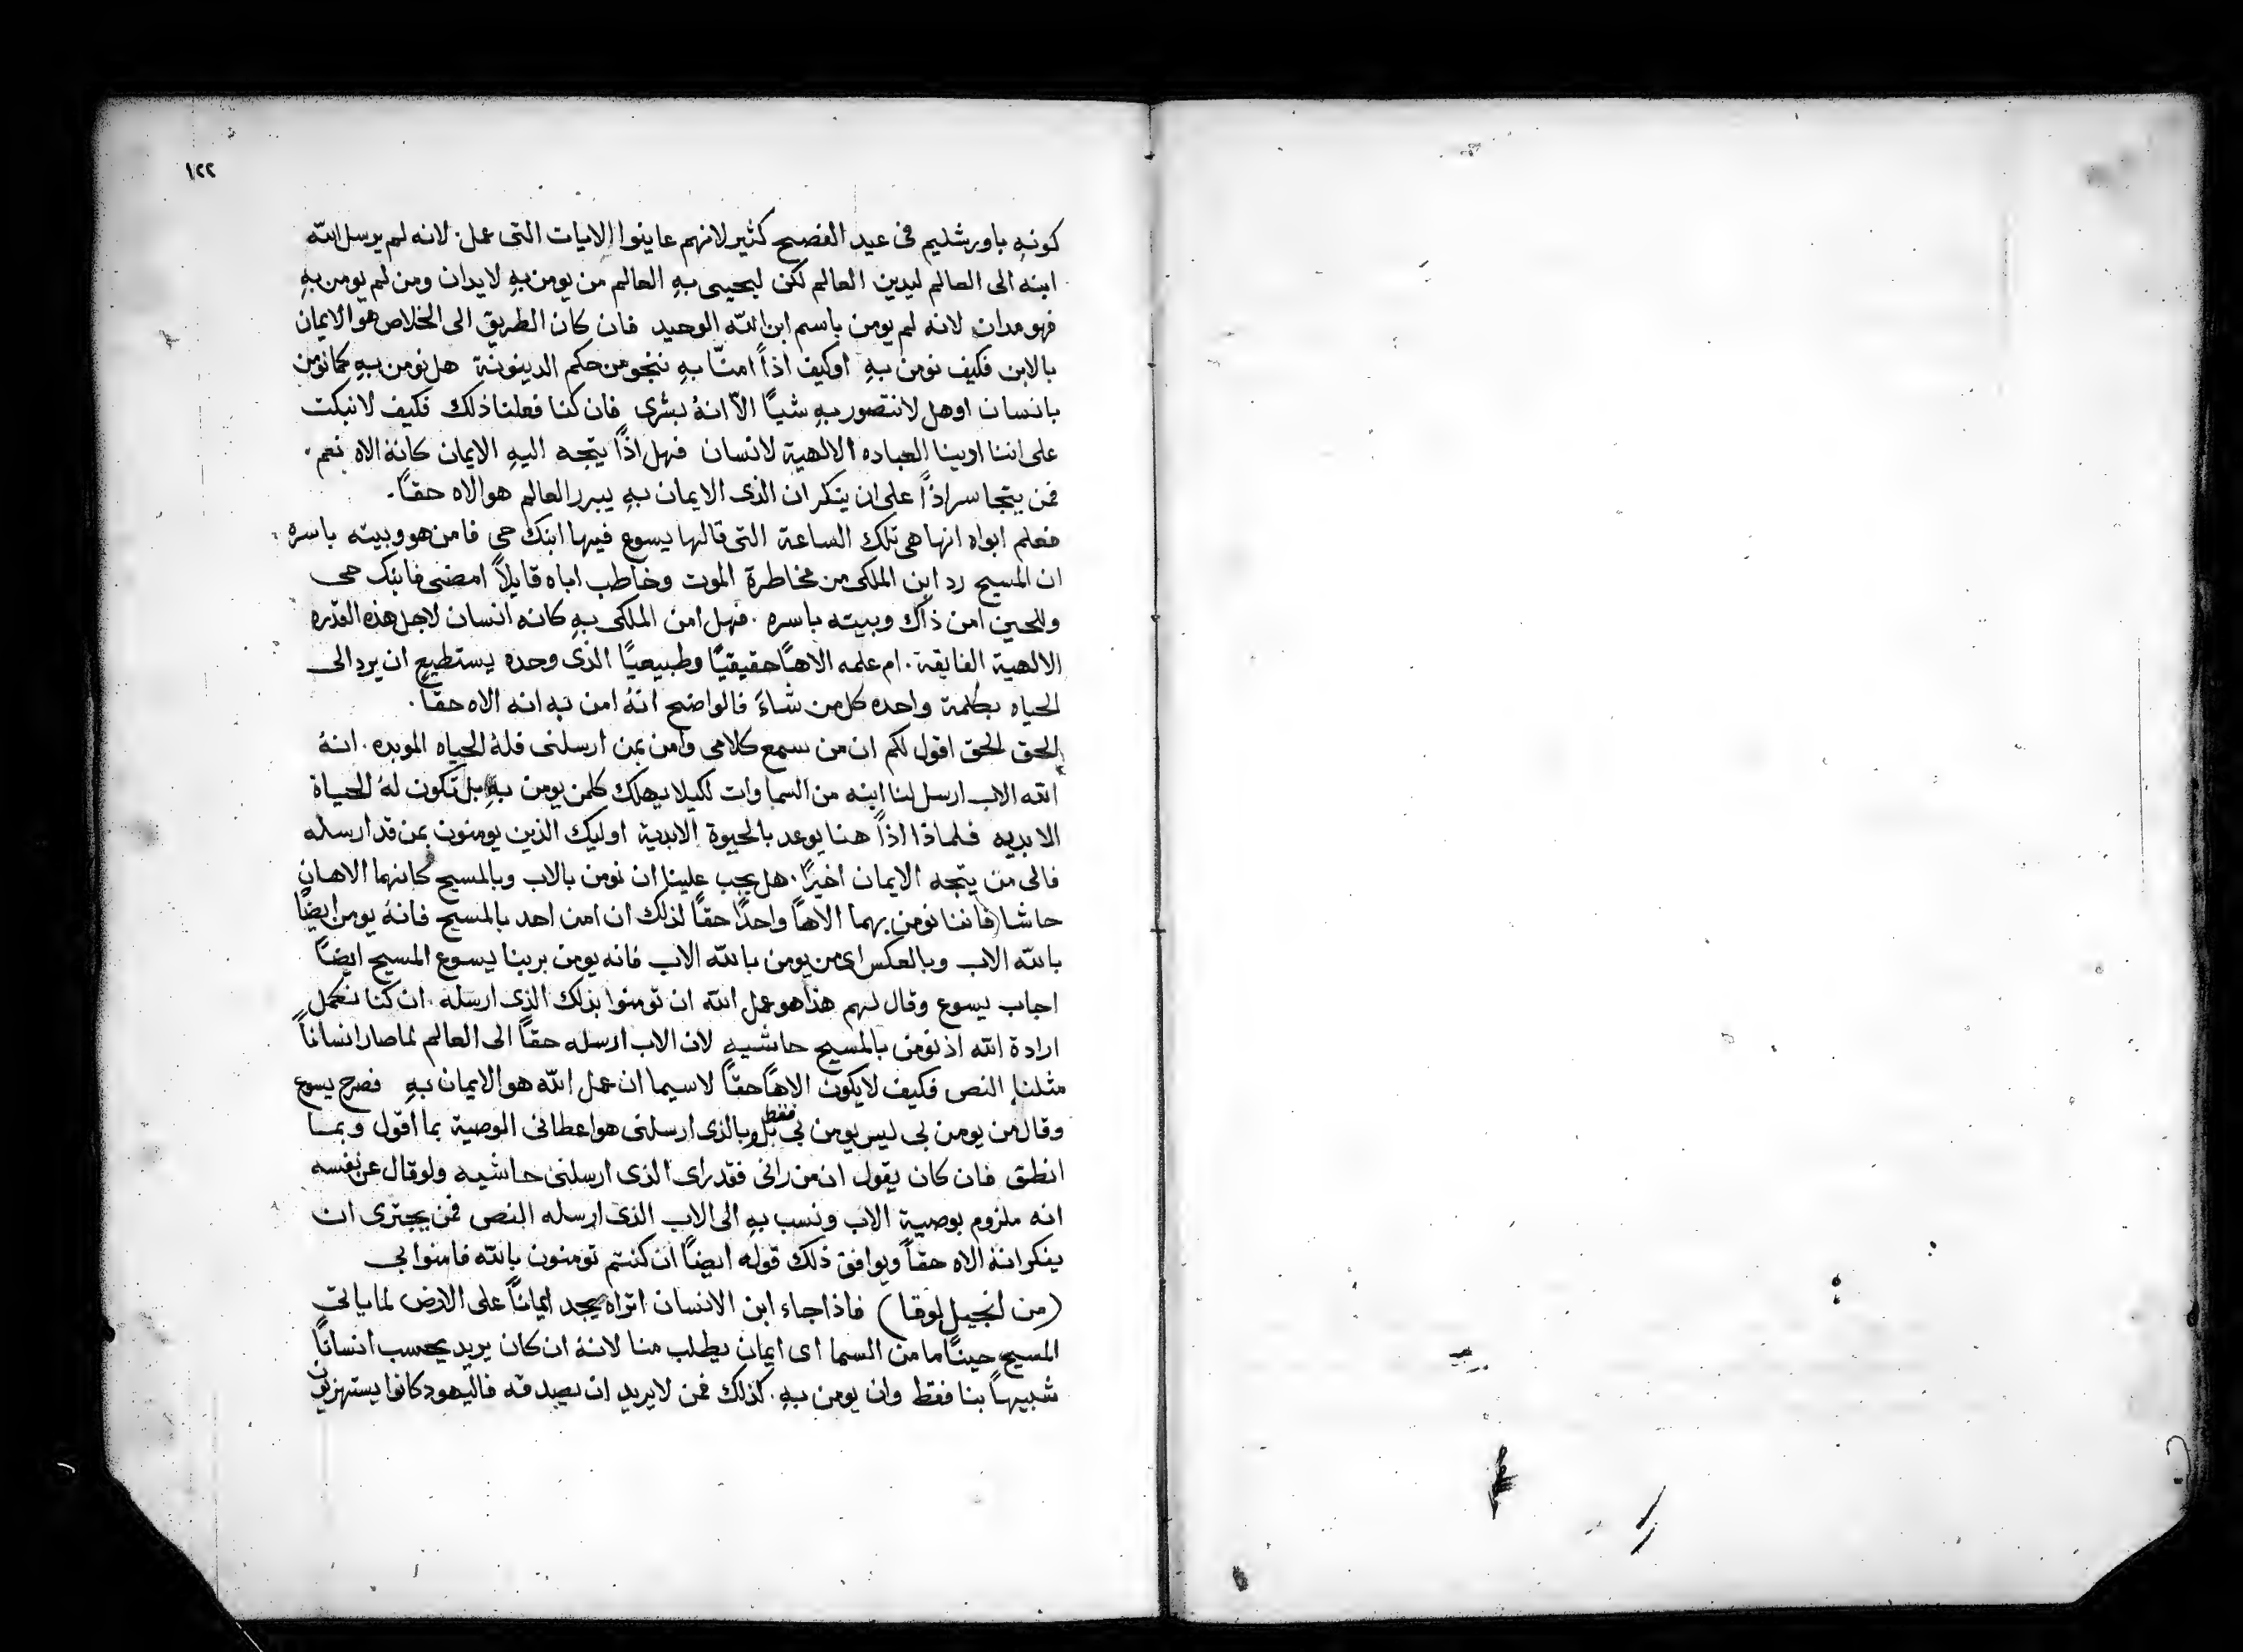 ١٢٢
كونهِ باورشليم فى عيد الفصح كثير لانهم عاينوا الايات التى عمل. لانه لم يرسل الله
ابنه الى العالم ليدين العالم لكن ليحيى بهِ العالم من يومن بهِ لا يدان ومن لم يومن بهِ
فهو مدان لانه لم يومن باسم ابن الله الوحيد فان كان الطريق الى الخلاص هو الايمان
بالابن فكيف نومن بهِ او كيف اذاً امنّا بهِ ننجو من حكم الدينونة هل نومن بهِ كما نومن
بانسان او هل لا نتصور بهِ شياً الاّ انهُ بشرى فان كنا فعلنا ذلك فكيف لا نبكت
على اننا اوينا العباده الالهية لانسان فهل اذاً يتجه اليهِ الايمان كانهُ الاه نعم.
فمن يتجاسر اذاً على ان ينكر ان الذى الايمان بهِ يبرر العالم هو الاه حقاً.
فعلم ابواه انها هى تلك الساعة التى قالها يسوع فيها ابنك حى فامن هو وبيته باسره
ان المسيح رد ابن الملكى من مخاطرة الموت وخاطب اباه قايلاً امضى فابنك حى
وللحين امن ذاك وبيته باسره. فهل امن الملكى بهِ كانه انسان لاجل هذه القدره
الالهية الفايقة. ام علمه الاهاً حقيقيًا وطبيعيًا الذى وحده يستطيع ان يرد الى
الحياه بكلمة واحده كل من شاءَ فالواضح انهُ امن به انه الاه حقاً.
الحق الحق اقول لكم ان من سمع كلامى وامن بمن ارسلنى فلهُ الحياه الموبده. انهُ
الله الاب ارسل لنا ابنه من السماوات لكيلا يهلك كلمن يومن بهِ بل تكون لهُ الحياة
الابديه فلماذا اذاً هنا يوعد بالحيوة الابدية اوليك الذين يومنون بمن قد ارسله
فالى من يتجه الايمان اخيرًا. هل يجب علينا ان نومن بالاب وبالمسيح كانهما الاهان
حاشا فاننا نومن بهما الاهاً واحدًا حقاً لذلك ان امن احد بالمسيح فانهُ يومن ايضًا
بالله الاب وبالعكس اى من يومن بالله الاب فانه يومن بربنا يسوع المسيح ايضاً
اجاب يسوع وقال لهم هذا هو عمل الله ان تومنوا بذلك الذى ارسله. ان كنا نعمل
ارادة الله اذ نومن بالمسيح حاشيه لان الاب ارسله حقاً الى العالم لما صار انساناً
مثلنا النص فكيف لا يكون الاهاً حقاً لا سيما ان عمل الله هو الايمان بهِ فصرح يسوع
وقال من يومن بى ليس يومن بى فقط بل وبالذى ارسلنى هو اعطانى الوصية بما اقول وبما
انطق فان كان يقول ان من رانى فقد راى الذى ارسلنى حاشيه ولو قال عن نفسه
انه ملزوم بوصية الاب ونسب بهِ الى الاب الذى ارسله النص فمن يجترى ان
ينكر انهُ الاه حقاً ويوافق ذلك قوله ايضًا ان كنتم تومنون بالله فامنوا بى
(من انجيل لوقا) فاذا جاء ابن الانسان اتراه يجد ايماناً على الارض لما ياتى
المسيح حيناً ما من السما اى ايمان يطلب منا لانهُ ان كان يريد يحسب انساناً
شبيهاً بنا فقط وان يومن بهِ. كذلك فمن لا يريد ان يصدقه فاليهود كانوا يستهزون